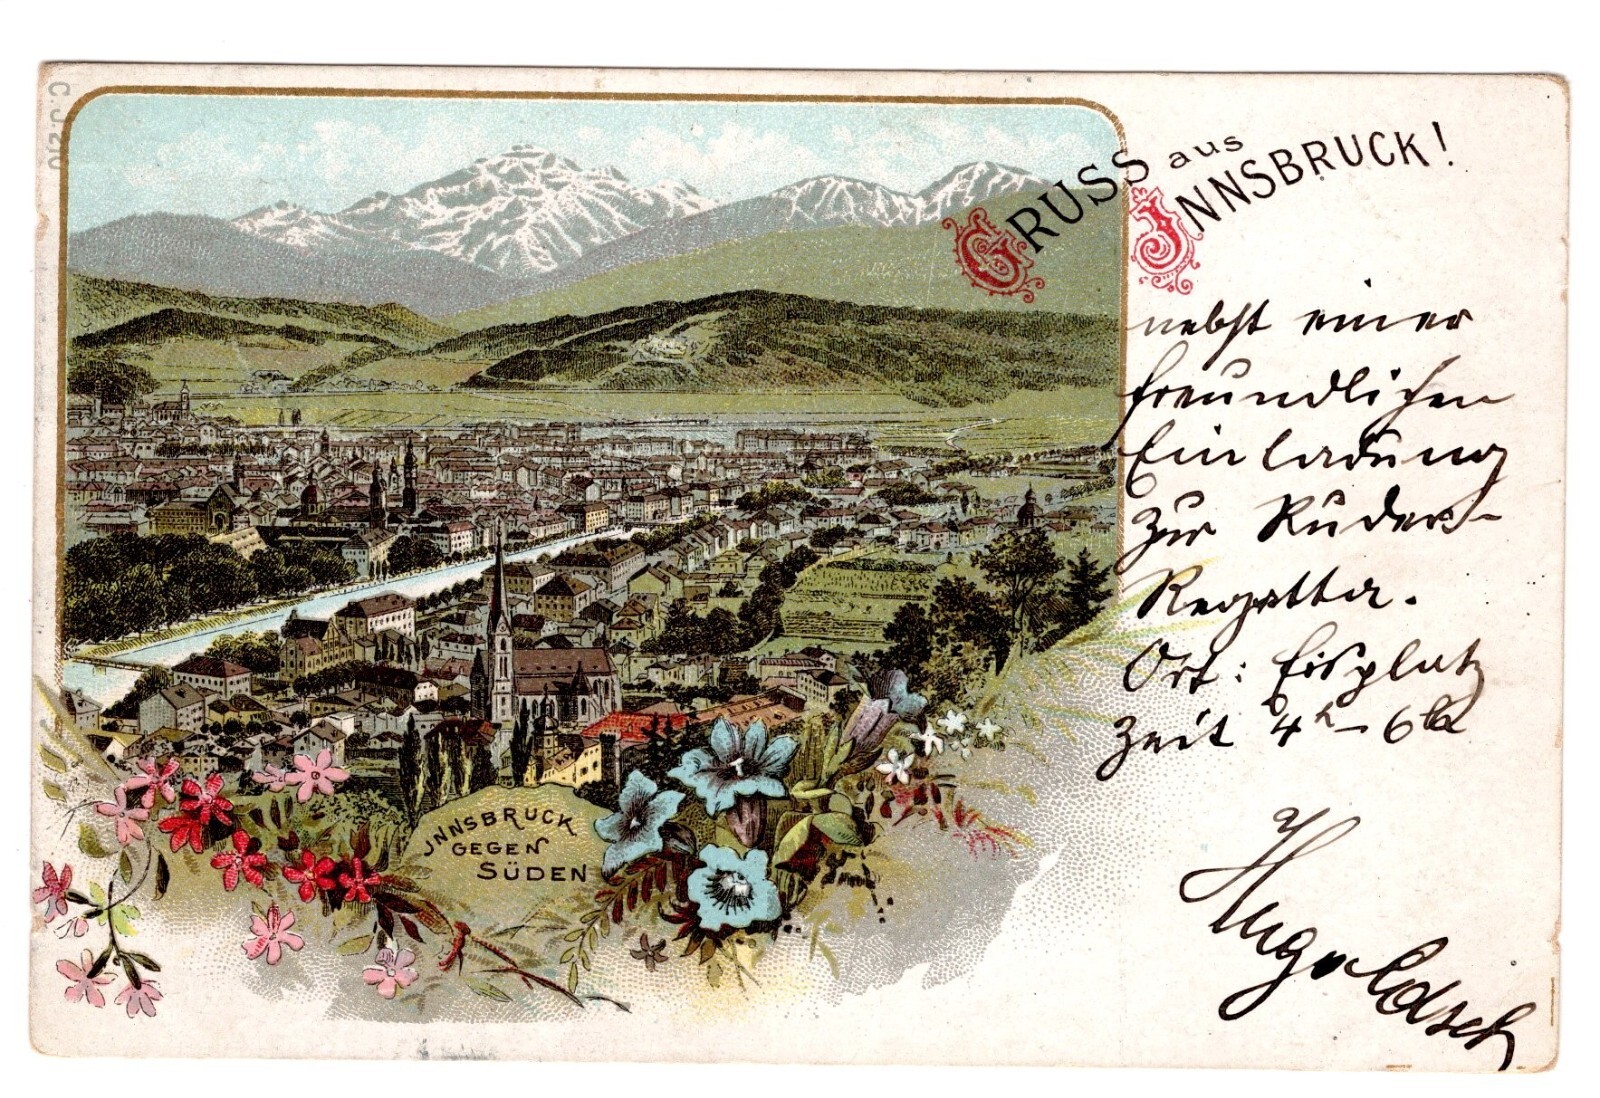 C. J. 210
GRUSS aus
INNSBRUCK!
nebst einer
freundlichen
Einladung
zur Ruder-
Regatta.
Ort: Eisplatz
Zeit 4h – 6h
Hugo
JNNSBRUCK
GEGEN
SÜDEN